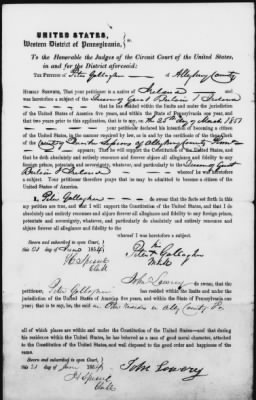 UNITED STATES,
Western District of Pennsylvania, } ss.
To the Honorable the Judges of the Circuit Court of the United States,
in and for the District aforesaid:
THE PETITION OF Peter Gallagher of Allegheny County
HUMBLY SHEWETH, That your petitioner is a native of Ireland and
was heretofore a subject of the Queen of Great Britain & Ireland
that he has resided within the limits and under the jurisdiction
of the United States five years, and within the State of Pennsylvania one year, and
that two years prior to this application, that is to say, on the 25th day of March 1851
your petitioner declared his intention of becoming a citizen
of the United States, in the manner required by law, as is and by the certificate of the Clerk
of the County Quarter Sessions of Allegheny County
that he will support the Constitution of the United States, and
that he doth absolutely and entirely renounce and abjure all allegiance and fidelity to any
foreign prince, potentate and sovereignty, whatever, and particularly to the Queen of Great
Britain & Ireland whereof he was heretofore
a subject. Your petitioner therefore prays that he may be admitted to become a citizen of
the United States of America.
I, Peter Gallagher do swear, that the facts set forth in this
my petition are true, and that I will support the Constitution of the United States, and that I do
absolutely and entirely renounce and abjure forever all allegiance and fidelity to any foreign prince,
potentate and sovereignty, whatever, and particularly do absolutely and entirely renounce
and abjure forever all allegiance and fidelity to the
whereof I was heretofore a subject.
Sworn and subscribed in open Court, }
this 21 day of June 1854
H Sproul
Clk
his
Peter X Gallagher
mark
John Lowry do swear, that the
petitioner, Peter Gallagher has resided within the limits and under the
jurisdiction of the United States of America five years, and within the State of Pennsylvania one
year; that is to say, he
all of which places are within and under the Constitution of the United States—and that during
his residence within the United States, he has behaved as a man of good moral character, attached
to the Constitution of the United States, and well disposed to the good order and happiness of
the same.
Sworn and subscribed in open Court, }
this 21 day of June 1854
H Sproul
Clk
John Lowry